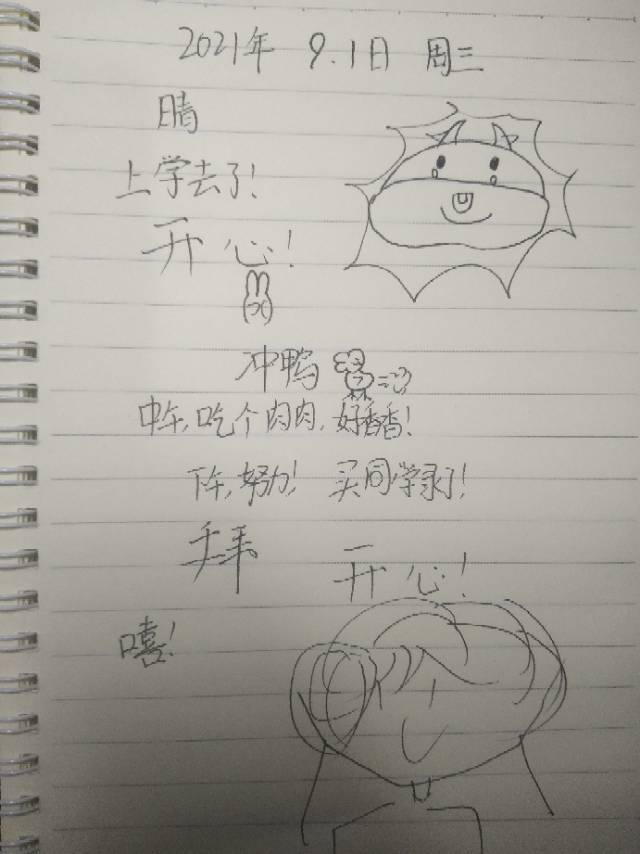 2021年 9.1日 周三
晴
上学去了!
开心!
冲鸭
中午,吃个肉肉,好香香!
下午,努力! 买同学录了!
开心!
嘻!